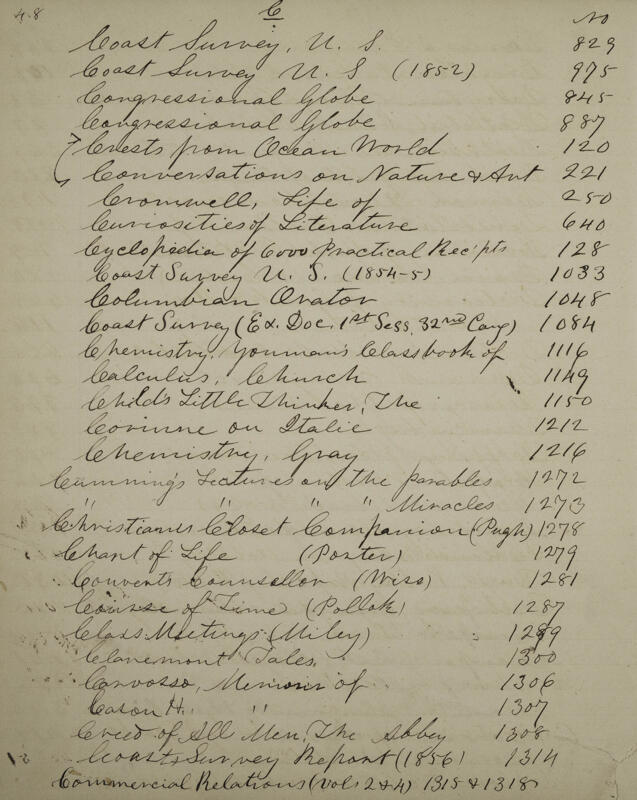 48 C No
Coast Survey, U. S. 829
Coast Survey U. S (1852) 975
Congressional Globe 845
Congressional Globe 887
Crests from Ocean World 120
Conversations on Nature & Art 221
Cromwell, Life of 250
Curiosities of Literature 640
Cyclopædia of 6000 Practical Rec'pts 128
Coast Survey U. S. (1854-5) 1033
Columbian Orator 1048
Coast Survey (Ex. Doc. 1st Sess. 32nd Cong) 1084
Chemistry, Youman's Classbook of 1116
Calculus, Church 1149
Child's Little Thinker, The 1150
Corinne on Italie 1212
Chemistry, Gray 1216
Cumming's Lectures on the parables 1272
" " " " Miracles 1273
Closet Companion (Pugh) 1278
Chant of Life (Porter) 1279
Counsellor (Wise) 1281
Course of Time (Pollok) 1287
Class Meetings (Miley)
Claremont Tales. 1300
Carvosso, Memoir of 1306
Cason H. " 1307
Creed of All Men, The Abbey 1308
Coast Survey Report (1856) 1314
Commercial Relations (Vols 2 & 4) 1315 & 1318